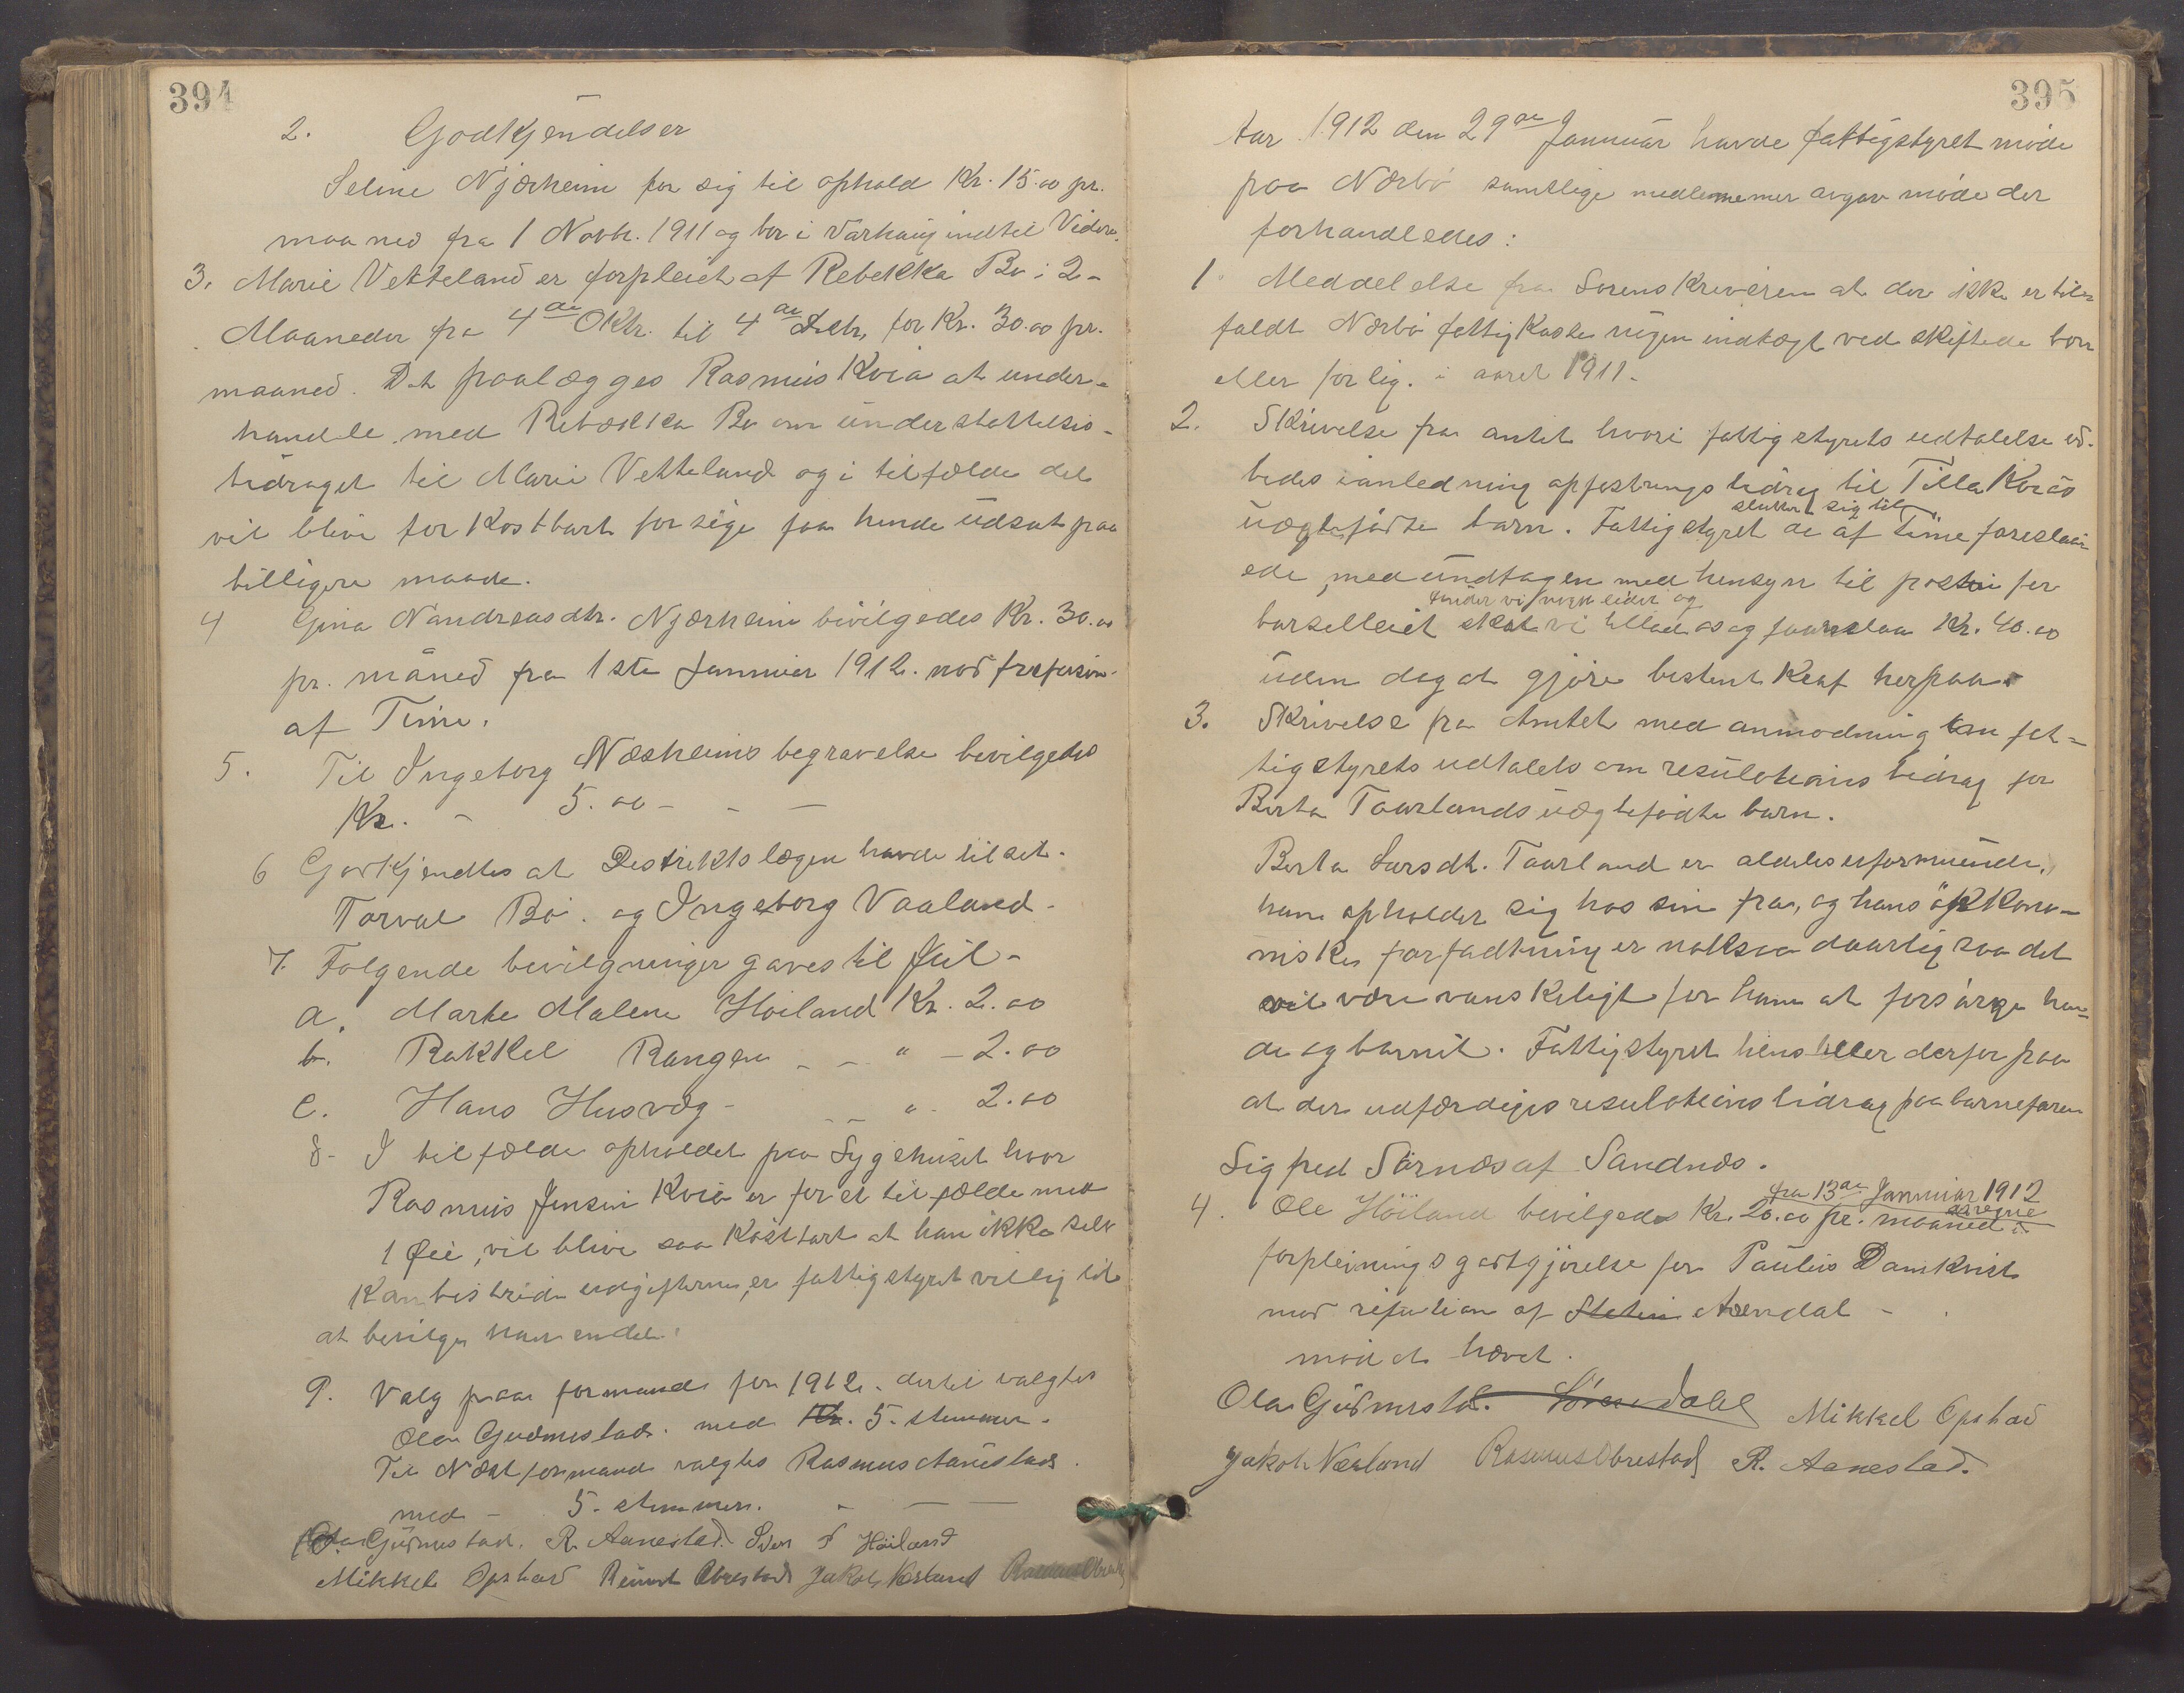 394
2. Godkjendelser
Seline Njærheim for sig til ophold Kr. 15.00 pr.
maaned fra 1 Novbr. 1911 og bor i Varhaug indtil Videre.
3. Marie Vetteland er forpleiet af Rebekka Bø i 2-
Maaneder fra 4de Oktr. til 4de Dcbr, for Kr. 30.00 pr.
maaned. Det paalægges Rasmus Kvia at under-
handle med Rebækka Bø om understøttelses-
bidraget til Marie Vetteland og i tilfælde det
vil blive for Kostbart forsøge faa hende udsat paa
billigere maade.
4 Gina Nandreasdtr. Njærheim bevilgedes Kr. 30.00
pr. måned fra 1ste Januar 1912. mod
af Time.
5. Til Ingeborg Næsheims begravelse bevilgedes
Kr. - 5.00 - - -
6 Godkjendtes at Destriktslægen havde tilset.
Torval Bø. og Ingeborg Vaaland.
7. Folgende bevilgninger gaves til Jul -
a. Marte Malene Høiland Kr. 2.00
b. Rakkel Rangen - - " - 2.00
c. Hans Husvæg - - - " - 2.00
8- I tilfælde opholdet paa Sygehuset hvor
Rasmus Jensen Kvia er for et tilfælde med
1 Øie, vil blive saa Kostbart at han ikke selv
Kan bestride udgifterne, er fattigstyret villig til
at bevilge ham endel.
9. Valg paa formand for 1912. dertil valgtes
Ola Gudmestad. med Kr. 5. stemmer.
Til Næstformand valgtes Rasmus Aanestad.
med - 5. stemmer. - - -
Ola Gudmestad. R. Aanestad. Høiland
Mikkel Opstad Reinert Obrestad Jakob Næsland Rasmus Obrestad
395
Aar 1912 den 29de Januar havde fattigstyret møde
paa Nærbø samtlige medlemmer avgav møde der
forhandledes:
1 Meddelelse fra Sorenskriveren at der ikke er til-
faldt Nærbø fattigkasse nogen indtægt ved skiftede bon
eller forlig. i aaret 1911.
2. Skrivelse fra amtet hvori fattigstyrets udtalelse ud-
bedes i anledning opfostrings bidrag til Tilla Kvias
uægtefødte barn. Fattigstyret slutter sig til de af Time foreslaa-
ede, med undtagen med hensyn til posten for
barselleiet skal vi tillade os og foreslaa Kr. 40.00
uden dog at gjøre bestemt Kraf herpaa.
3. Skrivelse fra Amtet med anmodning om fat-
tigstyrets udtalels om resulotions bidrag for
Berta Taarlands uægtefødte barn.
Berta Larsdt. Taarland er aldeles uformuende,
hun opholder sig hos sin far, og hans økkono-
miske forfadtning er noksaa daarlig saa det
vil være vanskeligt for ham at forsørge hen-
de og barnet. Fattigstyret henstiller derfor paa
at der udfærdiges resulotions bidrag paa barnefaren
Sigfred Sørnæs af Sandnæs.
4. Ole Høiland bevilgedes Kr. 20.00 pr. maaned fra 13de Januar 1912
forpleinings godtgjørelse for Paulus Damkvist
mod refutian af Stetin Arendal -
mødet hævet.
Ola Gudmestad. Søren Dahl Mikkel Opstad
Jakob Næsland Rasmus Obrestad R. Aanestad.